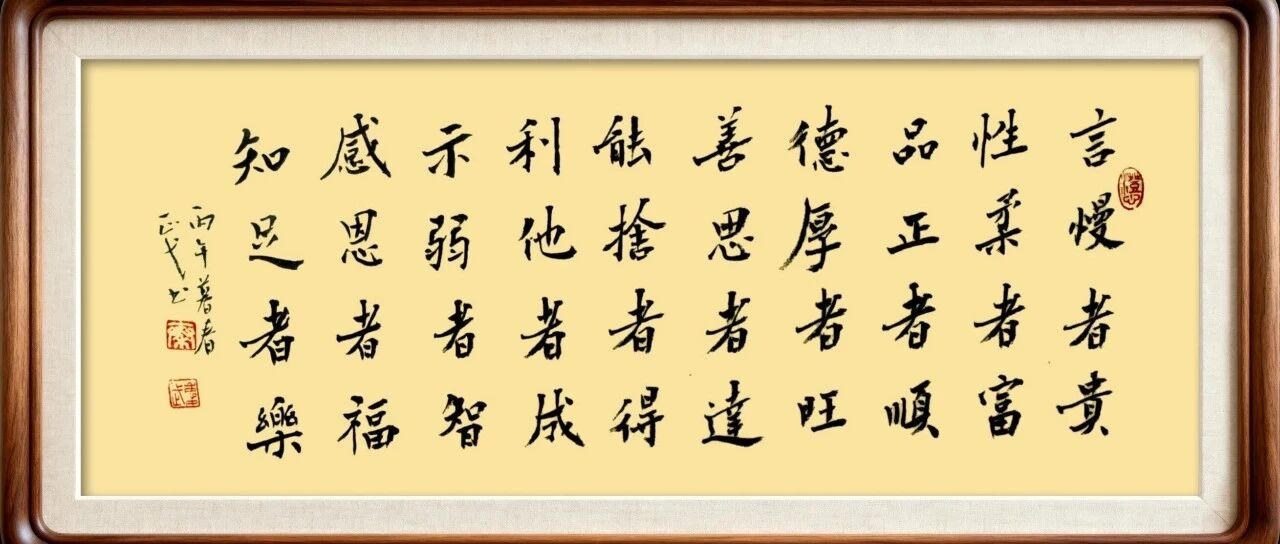 言慢者貴
性柔者富
品正者順
德厚者旺
善思者達
能捨者得
利他者成
示弱者智
感恩者福
知足者樂
丙午暮春
正武书